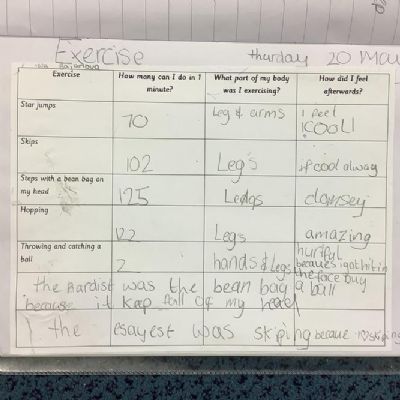 Exercise
thurday 20 Mar
Exercise
How many can I do in 1 minute?
What part of my body was I exercising?
How did I feel afterwards?
Star jumps
70
Leg & arms
I feel COOL!
Skips
102
Legs
if cool alway
Steps with a bean bag on my head
125
Legs
clomsey
Hopping
122
Legs
amazing
Throwing and catching a ball
2
hands & Legs
hurtful because i got hit in the face buy a ball
the Hardist was the bean bag
because it keep fall of my head
the esayest was skiping becaue I skiping